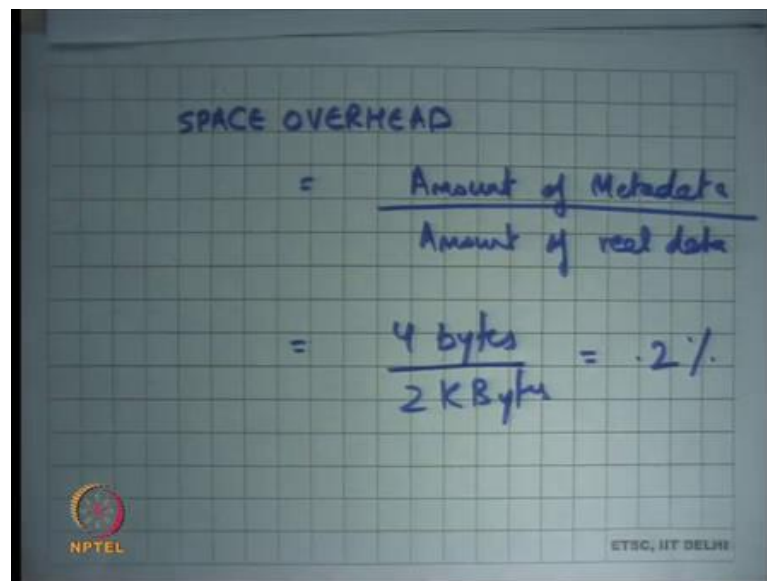 SPACE OVERHEAD
= Amount of Metadata
Amount of real data
= 4 bytes = .2%
2 KBytes
NPTEL
ETSC, IIT DELHI